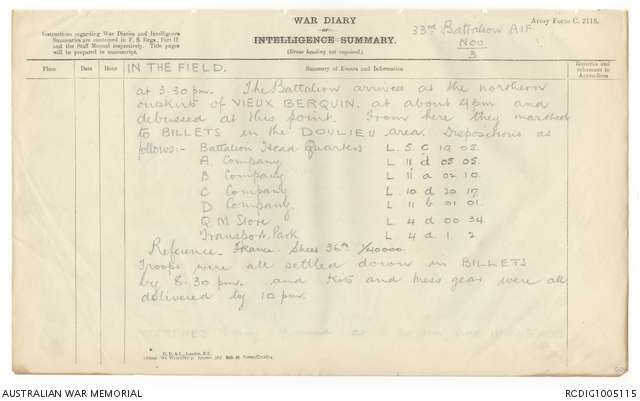 WAR DIARY
OR
INTELLIGENCE SUMMARY.
(Erase heading not required.)
Instructions regarding War Diaries and Intelligence
Summaries are contained in F. S. Regs., Part II.
and the Staff Manual respectively. Title pages
will be prepared in manuscript.
33rd Battalion AIF
Nov
3
Army Form C. 2118.
Place
Date
Hour
IN THE FIELD.
Summary of Events and Information
Remarks and
references to
Appendices
at 3.30 pm. The Battalion arrives at the northern
outskirts of VIEUX BERQUIN. at about 4pm and
debussed at this point. From here they marched
to BILLETS in the DOULIEU area. Dispositions as
follows:- Battalion Head Quarters L. 5. c 19 05.
A Company L 11 d 05 05.
B Company L 11 a 02 10.
C Company L 10 d 20 17.
D Company L 11 b 01 01.
Q M Store L 4 d 00 34.
Transport Park L 4 d. 1. 2
Reference. France. Sheet 36A 1/40000.
Troops were all settled down in BILLETS
by 8.30 pm. and Kits and mess gear were all
delivered by 10 pm.
D. D. & L., London, E.C.
AUSTRALIAN WAR MEMORIAL
RCDIG1005115